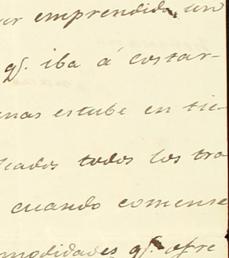 ar emprendido un
qᵉ. iba á costar-
enas estube en tie-
icados todos los tra
cuando comense
modidades qᵉ. ofre